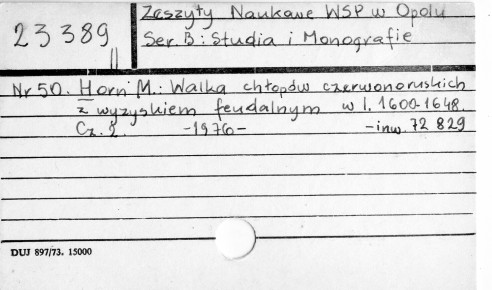 Zeszyty Naukowe WSP w Opolu
23 389 Ser. B: Studia i Monografie
II
Nr 50. Horn M.: Walka chłopów czerwonoruskich
z wyzyskiem feudalnym w l. 1600-1648.
Cz. 2 -1976- -inw. 72 829
DUJ 897/73. 15000